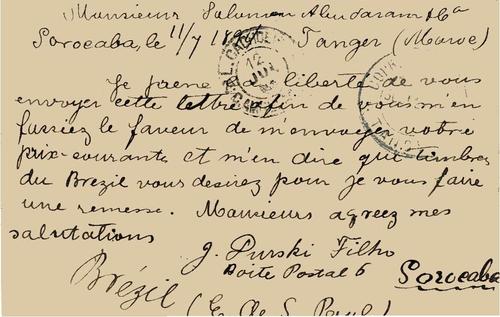 Monsieur Salomon Abudaram & Cª
Sorocaba, le 11/7 189 Tanger (Maroc)
Je prene liberté de vous
envoyer cette lettre afin de vous m'en
fassiez le faveur de m'envoyer votre
prix-courante et m'en dire que timbres
du Brezil vous desirez pour je vous faire
une remesse. Mausieurs agreez mes
salutations
J. Purski Filho
Boite Postal 6 Sorocaba
Brézil (E. de S. Paul)
12
TANGER